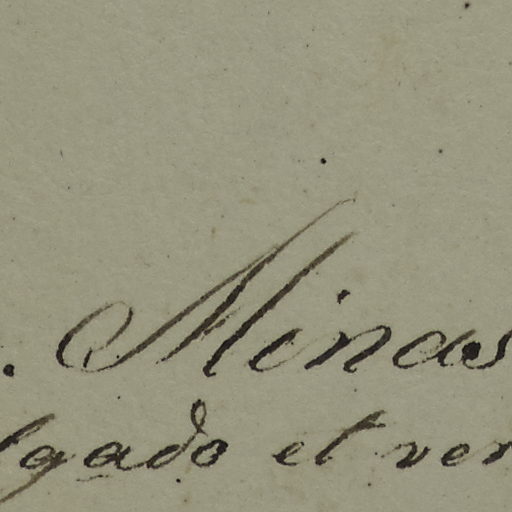 . Minas
lgado et ver